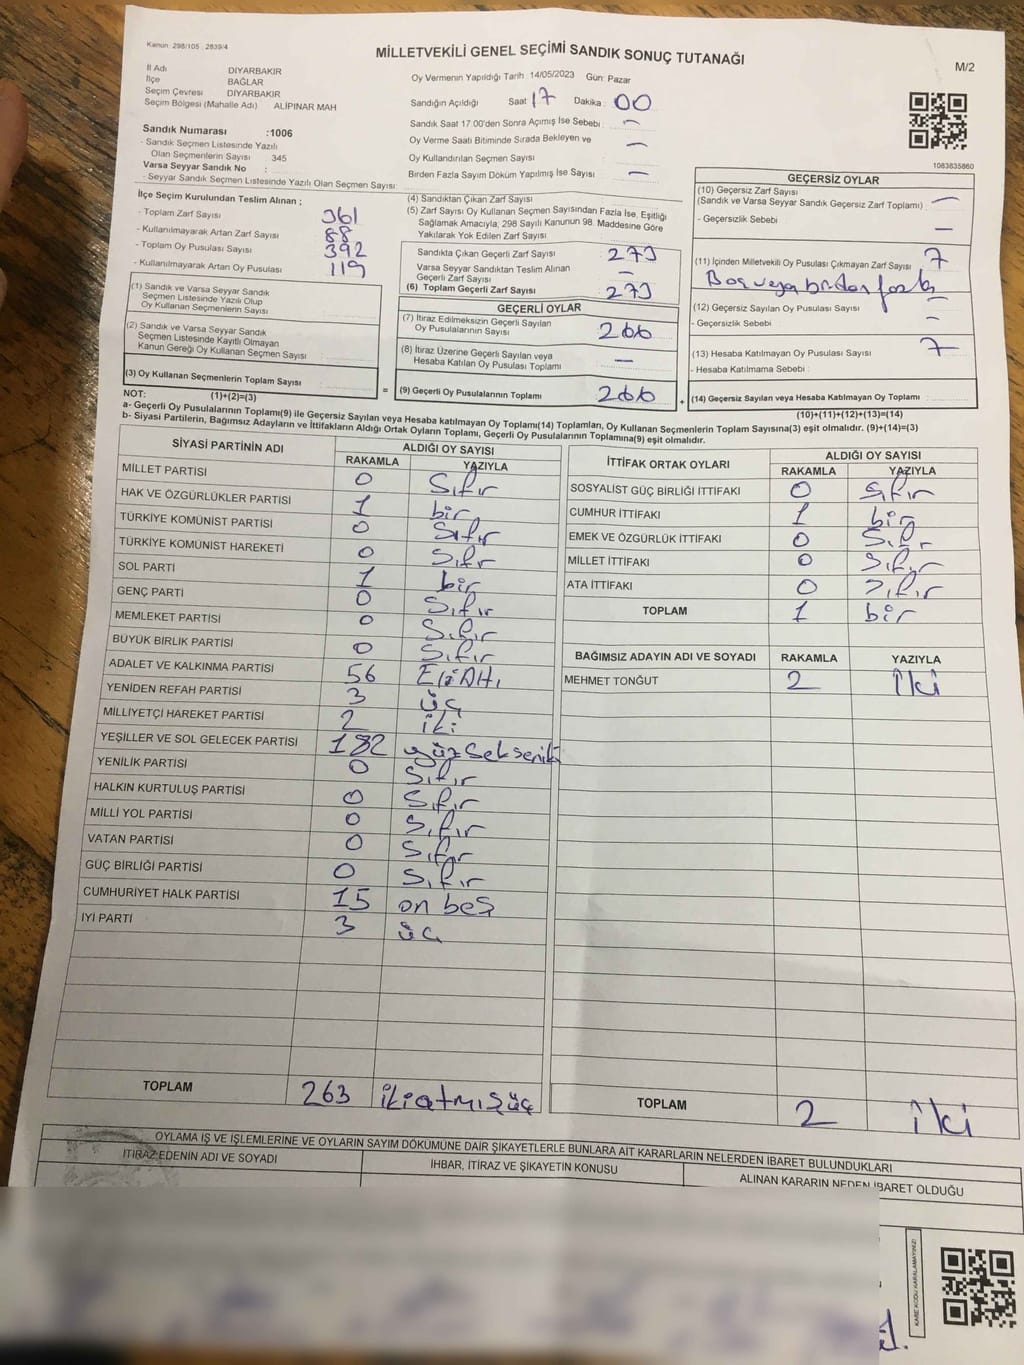 Kanun: 298/105 2839/4
MİLLETVEKİLİ GENEL SEÇİMİ SANDIK SONUÇ TUTANAĞI
M/2
İl Adı DİYARBAKIR
İlçe BAĞLAR
Seçim Çevresi DİYARBAKIR
Seçim Bölgesi (Mahalle Adı) ALİPINAR MAH
Sandık Numarası :1006
- Sandık Seçmen Listesinde Yazılı
Olan Seçmenlerin Sayısı : 345
Varsa Seyyar Sandık No :
- Seyyar Sandık Seçmen Listesinde Yazılı Olan Seçmen Sayısı :
Oy Vermenin Yapıldığı Tarih :14/05/2023 Gün: Pazar
Sandığın Açıldığı Saat 17 Dakika : 00
Sandık Saat 17.00'den Sonra Açımış İse Sebebi : —
Oy Verme Saati Bitiminde Sırada Bekleyen ve —
Oy Kullandırılan Seçmen Sayısı
Birden Fazla Sayım Döküm Yapılmış İse Sayısı —
1083835860
İlçe Seçim Kurulundan Teslim Alınan ;
- Toplam Zarf Sayısı 361
- Kullanılmayarak Artan Zarf Sayısı 88
- Toplam Oy Pusulası Sayısı 392
- Kullanılmayarak Artan Oy Pusulası 119
(1) Sandık ve Varsa Seyyar Sandık
Seçmen Listesinde Yazılı Olup
Oy Kullanan Seçmenlerin Sayısı :
(2) Sandık ve Varsa Seyyar Sandık
Seçmen Listesinde Kayıtlı Olmayan
Kanun Gereği Oy Kullanan Seçmen Sayısı :
(3) Oy Kullanan Seçmenlerin Toplam Sayısı
(4) Sandıktan Çıkan Zarf Sayısı
(5) Zarf Sayısı Oy Kullanan Seçmen Sayısından Fazla İse, Eşitliği
Sağlamak Amacıyla; 298 Sayılı Kanunun 98. Maddesine Göre
Yakılarak Yok Edilen Zarf Sayısı
Sandıkta Çıkan Geçerli Zarf Sayısı 273
Varsa Seyyar Sandıktan Teslim Alınan
Geçerli Zarf Sayısı —
(6) Toplam Geçerli Zarf Sayısı 273
GEÇERLİ OYLAR
(7) İtiraz Edilmeksizin Geçerli Sayılan
Oy Pusulalarının Sayısı 266
(8) İtiraz Üzerine Geçerli Sayılan veya
Hesaba Katılan Oy Pusulası Toplamı —
= (9) Geçerli Oy Pusulalarının Toplamı 266 +
GEÇERSİZ OYLAR
(10) Geçersiz Zarf Sayısı
(Sandık ve Varsa Seyyar Sandık Geçersiz Zarf Toplamı) —
- Geçersizlik Sebebi : —
(11) İçinden Milletvekili Oy Pusulası Çıkmayan Zarf Sayısı 7
Boş veya birden fazla
(12) Geçersiz Sayılan Oy Pusulası Sayısı —
- Geçersizlik Sebebi —
(13) Hesaba Katılmayan Oy Pusulası Sayısı 7
- Hesaba Katılmama Sebebi :
(14) Geçersiz Sayılan veya Hesaba Katılmayan Oy Toplamı :
NOT: (1)+(2)=(3)
(10)+(11)+(12)+(13)=(14)
a- Geçerli Oy Pusulalarının Toplamı(9) ile Geçersiz Sayılan veya Hesaba katılmayan Oy Toplamı(14) Toplamları, Oy Kullanan Seçmenlerin Toplam Sayısına(3) eşit olmalıdır. (9)+(14)=(3)
b- Siyasi Partilerin, Bağımsız Adayların ve İttifakların Aldığı Ortak Oyların Toplamı, Geçerli Oy Pusulalarının Toplamına(9) eşit olmalıdır.
SİYASİ PARTİNİN ADI ALDIĞI OY SAYISI
RAKAMLA YAZIYLA
MİLLET PARTİSİ 0 Sıfır
HAK VE ÖZGÜRLÜKLER PARTİSİ 1 bir
TÜRKİYE KOMÜNİST PARTİSİ 0 Sıfır
TÜRKİYE KOMÜNİST HAREKETİ 0 Sıfır
SOL PARTİ 1 bir
GENÇ PARTİ 0 Sıfır
MEMLEKET PARTİSİ 0 Sıfır
BÜYÜK BİRLİK PARTİSİ 0 Sıfır
ADALET VE KALKINMA PARTİSİ 56 Elli Altı
YENİDEN REFAH PARTİSİ 3 üç
MİLLİYETÇİ HAREKET PARTİSİ 2 iki
YEŞİLLER VE SOL GELECEK PARTİSİ 182 yüz seksen iki
YENİLİK PARTİSİ 0 Sıfır
HALKIN KURTULUŞ PARTİSİ 0 Sıfır
MİLLİ YOL PARTİSİ 0 Sıfır
VATAN PARTİSİ 0 Sıfır
GÜÇ BİRLİĞİ PARTİSİ 0 Sıfır
CUMHURİYET HALK PARTİSİ 15 on beş
İYİ PARTİ 3 üç
TOPLAM 263 ikiatmışüç
İTTİFAK ORTAK OYLARI ALDIĞI OY SAYISI
RAKAMLA YAZIYLA
SOSYALİST GÜÇ BİRLİĞİ İTTİFAKI 0 Sıfır
CUMHUR İTTİFAKI 1 bir
EMEK VE ÖZGÜRLÜK İTTİFAKI 0 Sıfır
MİLLET İTTİFAKI 0 Sıfır
ATA İTTİFAKI 0 Sıfır
TOPLAM 1 bir
BAĞIMSIZ ADAYIN ADI VE SOYADI RAKAMLA YAZIYLA
MEHMET TONĞUT 2 İki
TOPLAM 2 İki
OYLAMA İŞ VE İŞLEMLERİNE VE OYLARIN SAYIM DÖKÜMÜNE DAİR ŞİKAYETLERLE BUNLARA AİT KARARLARIN NELERDEN İBARET BULUNDUKLARI
İTİRAZ EDENİN ADI VE SOYADI İHBAR, İTİRAZ VE ŞİKAYETİN KONUSU ALINAN KARARIN NEDEN İBARET OLDUĞU
KARE KODU KARALAMAYINIZ!